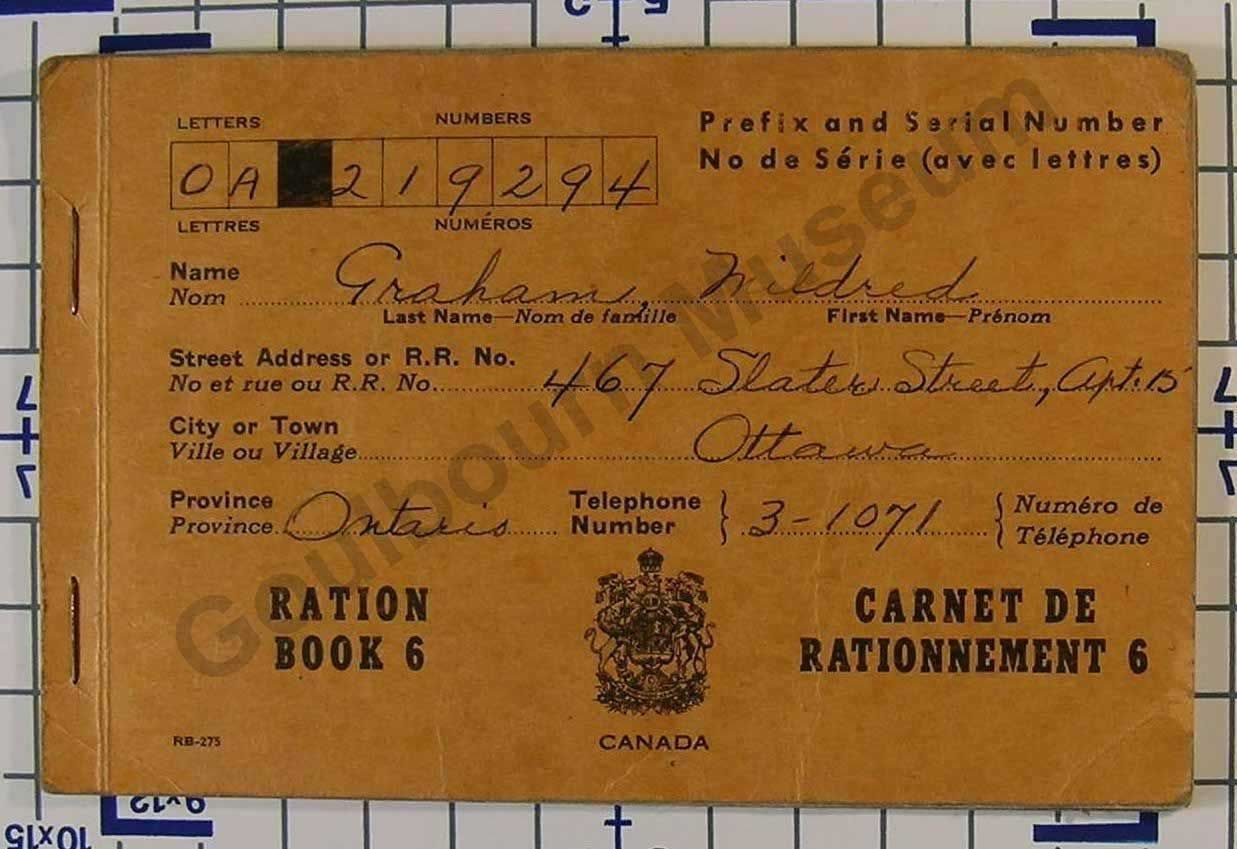 LETTERS NUMBERS
OA 219294
LETTRES NUMÉROS
Prefix and Serial Number
No de Série (avec lettres)
Name Graham, Mildred
Nom
Last Name—Nom de famille First Name—Prénom
Street Address or R.R. No. 467 Slater Street, Apt. 15
No et rue ou R.R. No.
City or Town Ottawa
Ville ou Village
Province Ontario Telephone Number 3-1071 Numéro de Téléphone
Province
RATION BOOK 6
CARNET DE RATIONNEMENT 6
RB-275
CANADA
Goulbourn Museum
5
7
7
7
7
9x12
10x15